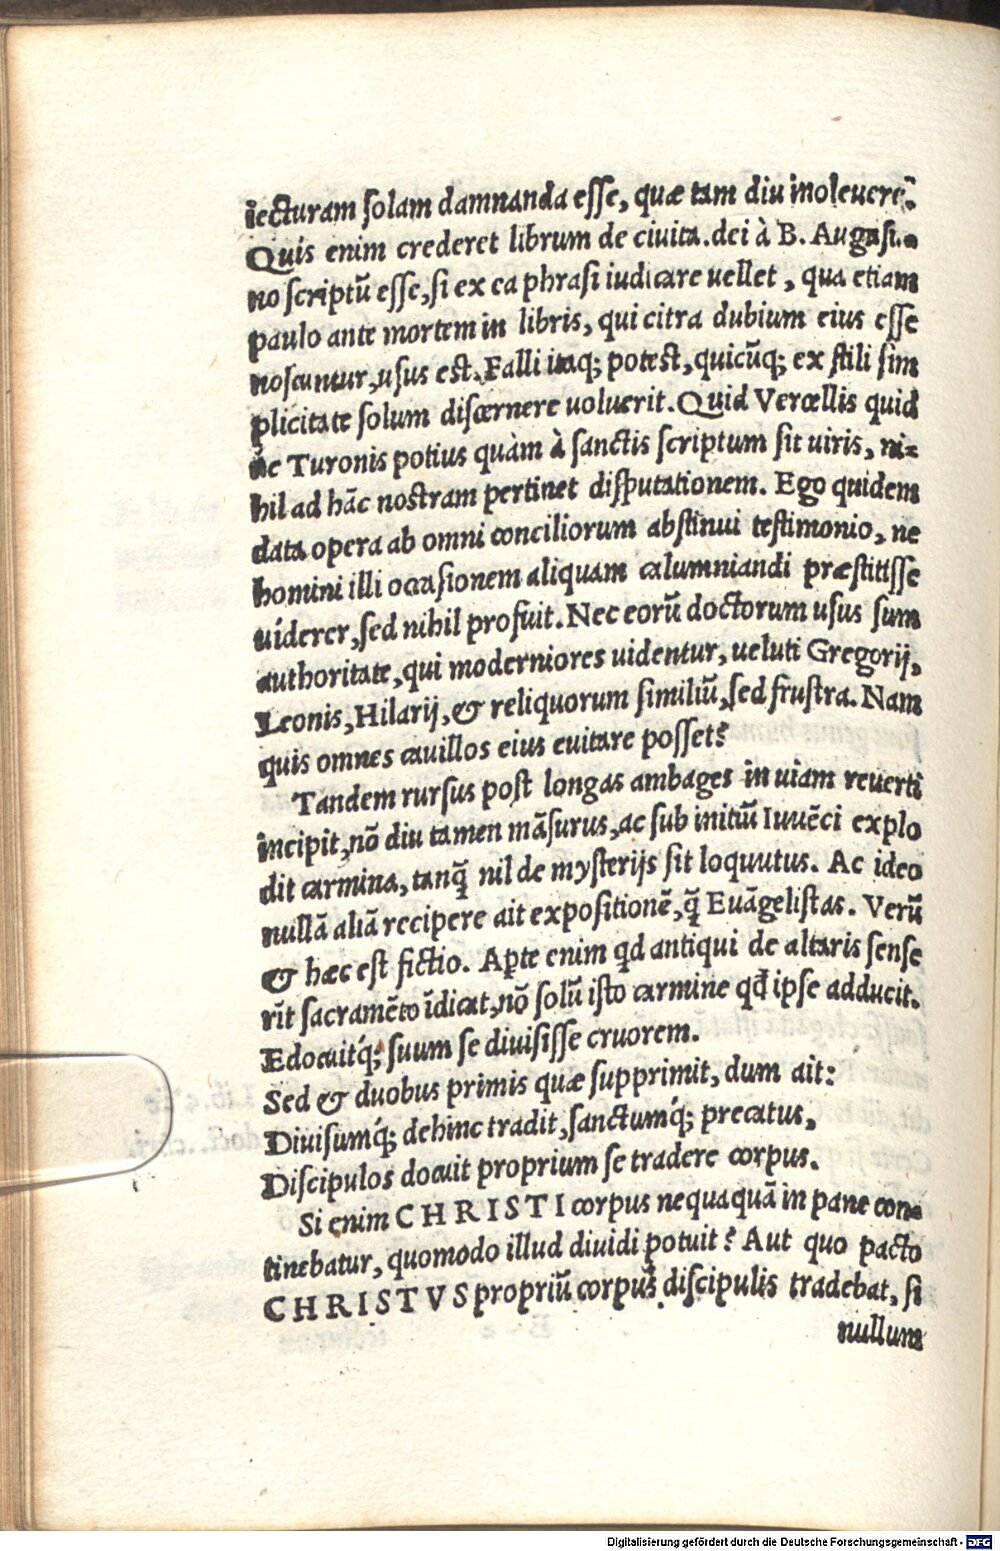 iecturam solam damnanda esse, quæ tam diu inoleuere?
Quis enim crederet librum de ciuita.dei à B. Augusti-
no scriptũ esse, si ex ea phrasi iudicare uellet, qua etiam
paulo ante mortem in libris, qui citra dubium eius esse
noscuntur, usus est. Falli itaq; potest, quicũq; ex stili sim
plicitate solum discernere uoluerit. Quid Vercellis quid
ue Turonis potius quàm à sanctis scriptum sit uiris, ni-
hil ad hãc nostram pertinet disputationem. Ego quidem
data opera ab omni conciliorum abstinui testimonio, ne
homini illi occasionem aliquam calumniandi præstitisse
uiderer, sed nihil profuit. Nec eorũ doctorum usus sum
authoritate, qui moderniores uidentur, ueluti Gregorij,
Leonis, Hilarij, & reliquorum similiũ, sed frustra. Nam
quis omnes cauillos eius euitare posset?
Tandem rursus post longas ambages in uiam reuerti
incipit, nõ diu tamen mãsurus, ac sub initiũ Iuuẽci explo
dit carmina, tanq̃ nil de mysterijs sit loquutus. Ac ideo
nullã aliã recipere ait expositionẽ, q̃ Euãgelistas. Verũ
& hæc est fictio. Aꝑte enim qd antiqui de altaris sense
rĩt sacramẽto ĩdicat, nõ solũ isto carmine qd̃ ipse adducit.
Edocuitq́; suum se diuisisse cruorem.
Sed & duobus primis quæ supprimit, dum ait:
Diuisumq́; dehinc tradit, sanctumq́; precatus,
Discipulos docuit proprium se tradere corpus.
Si enim CHRISTI corpus nequaquã in pane con-
tinebatur, quomodo illud diuidi potuit? Aut quo pacto
CHRISTVS propriũ corpus discipulis tradebat, si
nullum
Digitalisierung gefördert durch die Deutsche Forschungsgemeinschaft - DFG